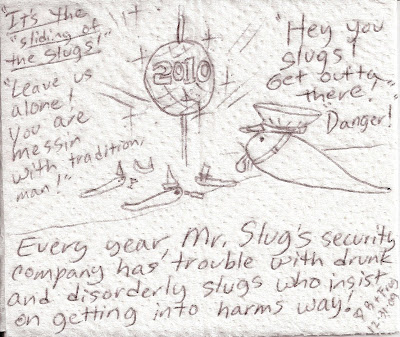 "It's the
"sliding of
the Slugs!"
"Leave us
alone!
You are
messin
with tradition,
man!"
2010
"Hey you
slugs!
Get outta
there!"
"Danger!
Every year, Mr. Slug's security
company has trouble with drunk
and disorderly slugs who insist
on getting into harms way!
12-31-09